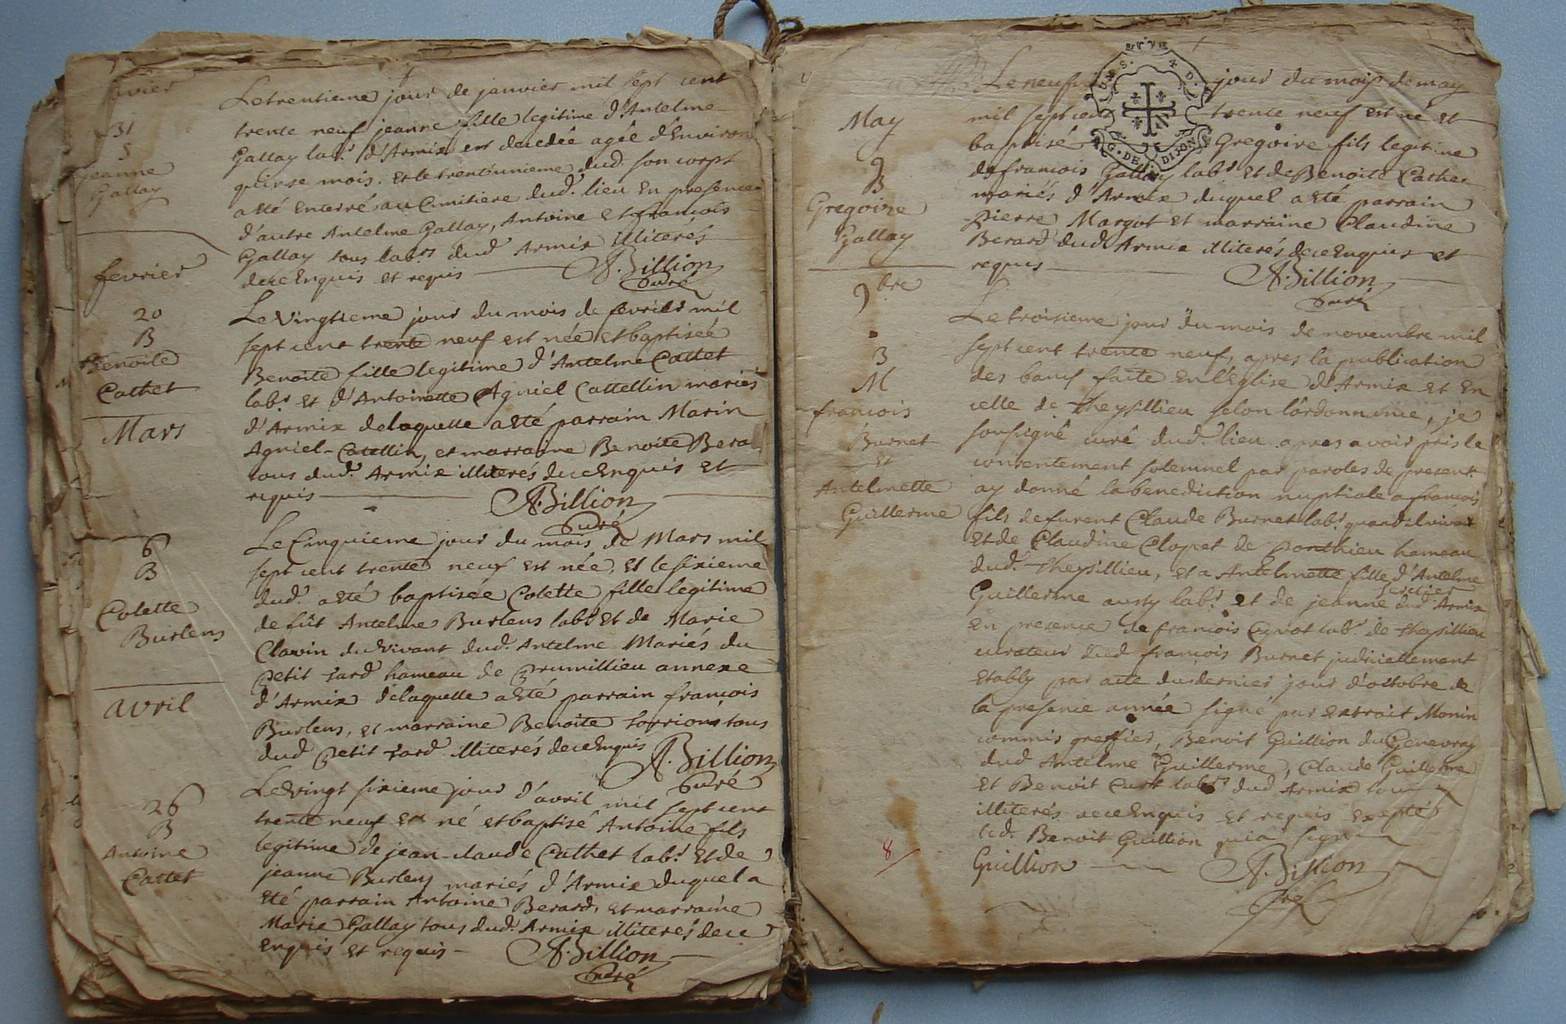 janvier
31
S
jeanne
Gallay
Le trentieme jour de janvier mil sept cent
trente neuf jeanne fille legitime d'Antelme
Gallay lab.r d'Armix est decedée agée d'Environ
quinse mois. et le trent'unieme dud. son corps
a eté enterré au Cimitiere dud. lieu En presence
d'autre Antelme Gallay, Antoine et françois
Gallay tous lab.rs dud. Armix illiterés
de ce Enquis et requis
A. Billion
Curé
fevrier
20
B
Benoite
Cathet
Le Vingtieme jour du mois de fevrier mil
sept cent trente neuf est née et baptisée
Benoite fille legitime d'Antelme Cattet
lab.r et d'Antoinette Agniel Cattellin mariés
d'Armix de laquelle a eté parrain Marin
Agniel-Catellin, et marraine Benoite Berard
tous dud. Armix illiterés de ce Enquis et
requis
A. Billion
Curé
Mars
6
B
Colette
Burlens
Le Cinquieme jour du mois de Mars mil
sept cent trente neuf est née, et le sixieme
dud. a eté baptisée Colette fille legitime
de fût Antelme Burlens lab.r et de Marie
Clavin du vivant dud. Antelme Mariés du
petit hameau de Prumillieu annexe
d'Armix de laquelle a eté parrain françois
Burlens, et marraine Benoite tous
dud. petit illiterés de ce Enquis
A. Billion
Curé
avril
26
B
Antoine
Cattet
Le Vingt sixieme jour d'avril mil sept cent
trente neuf est né et baptisé Antoine fils
legitime de jean-claude Cathet lab.r et de
jeanne Burlens mariés d'Armix duquel a
eté parrain Antoine Berard, et marraine
Marie Gallay tous dud. Armix illiterés de ce
Enquis et requis
A. Billion
Curé
May
9
B
Gregoire
Gallay
Le neuf jour du mois de may
mil sept cent trente neuf est né et
baptisé Gregoire fils legitime
de françois Gallay lab.r et de Benoite Cathet
mariés d'Armix duquel a eté parrain
pierre Margot et marraine Claudine
Berard dud. Armix illiterés de ce Enquis et
requis
A. Billion
Curé
9bre
3
M
francois
Burnet
et
Antelmette
Guillerme
Le troisieme jour du mois de novembre mil
sept cent trente neuf, apres la publication
des bans faite en l'eglise d'Armix et en
celle de theysillieu selon l'ordonnance, je
soussigné curé dud. lieu apres avoir pris le
consentement solemnel par paroles de present
ay donné la benediction nuptiale a francois
fils de furent Claude Burnet lab.r quand il vivoit
et de Claudine Clopet de ponthieu hameau
dud. theysillieu, et a Antelmette fille d'Antelme
Guillerme aussy lab.r et de jeanne dud. Armix
En presence de françois lab.r de theysillieu
curateur dud. françois Burnet judiciallement
etably par acte du dernier jour d'octobre de
la presente année signé par extrait Monin
commis greffier, Benoit Guillion du Genevray
dud. Antelme Guillerme, Claude Guillerme
et Benoit lab.rs dud. Armix tous
illiterés de ce Enquis et requis Excepté
led. Benoit Guillion qui a signé
Guillion
A. Billion
Curé
8
G. DE DIJON